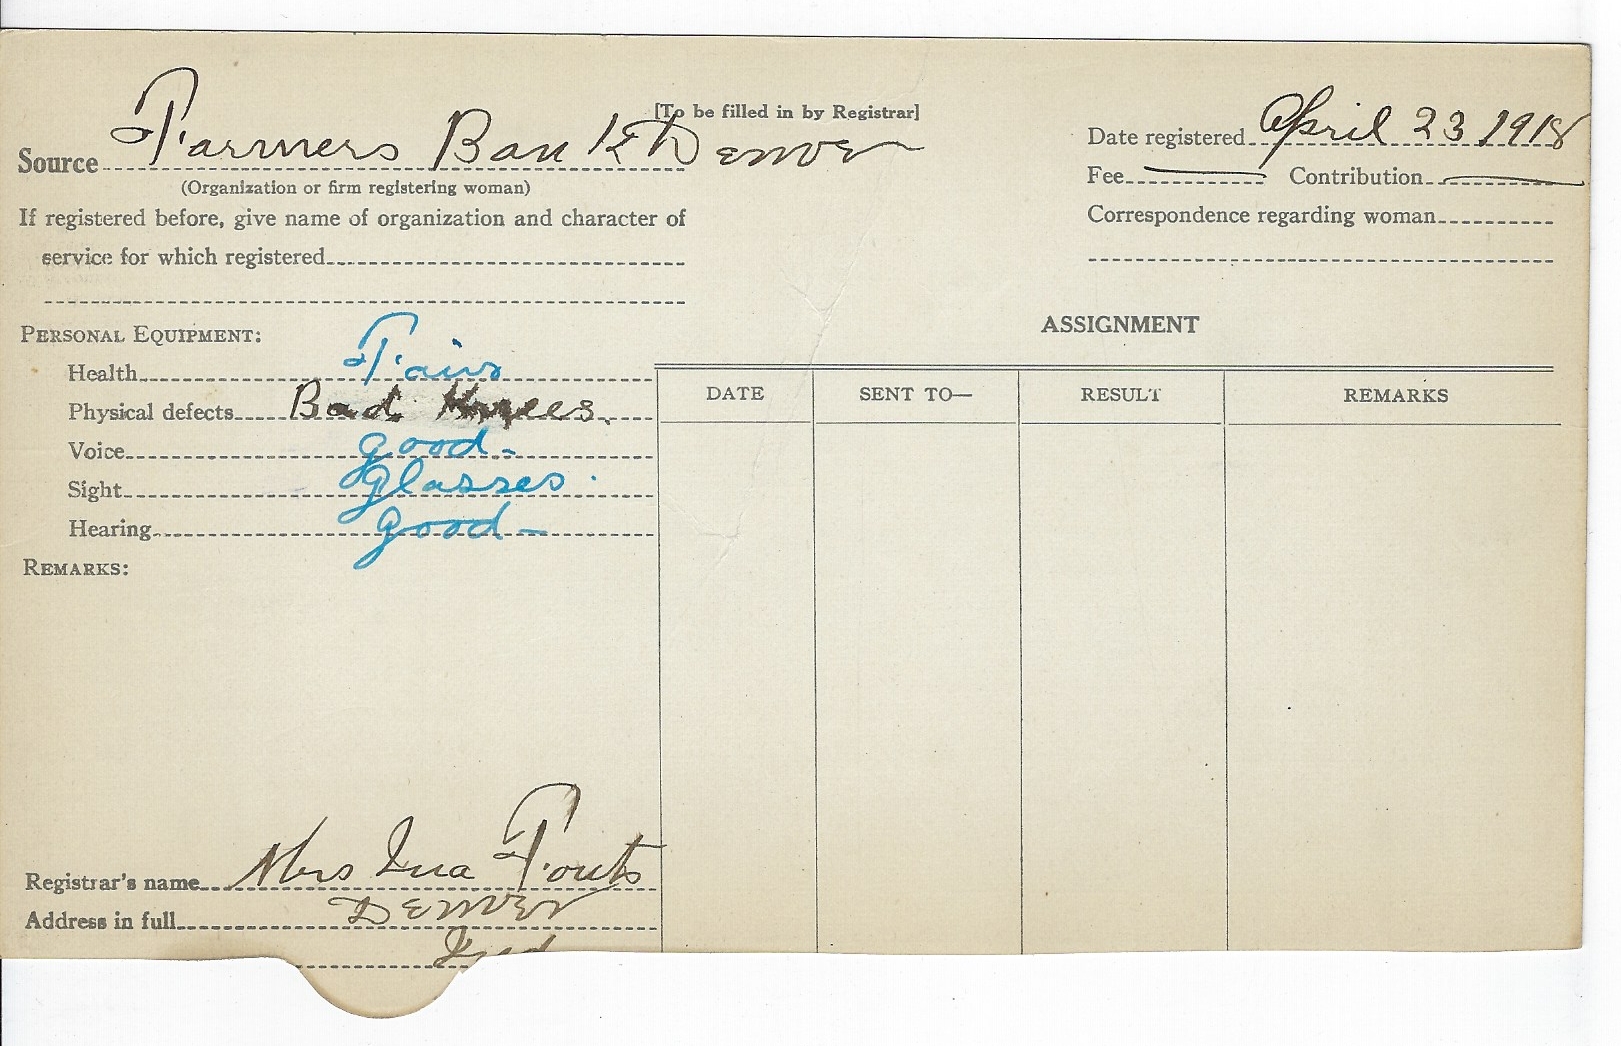 [To be filled in by Registrar]
Source Farmers Bank Denver
(Organization or firm registering woman)
Date registered April 23 1918
Fee Contribution
If registered before, give name of organization and character of
service for which registered
Correspondence regarding woman
PERSONAL EQUIPMENT:
Health Fair
Physical defects Bad Knees.
Voice good-
Sight glasses.
Hearing good-
REMARKS:
ASSIGNMENT
DATE SENT TO— RESULT REMARKS
Registrar's name Mrs Ina Fouts
Address in full Denver
Ind